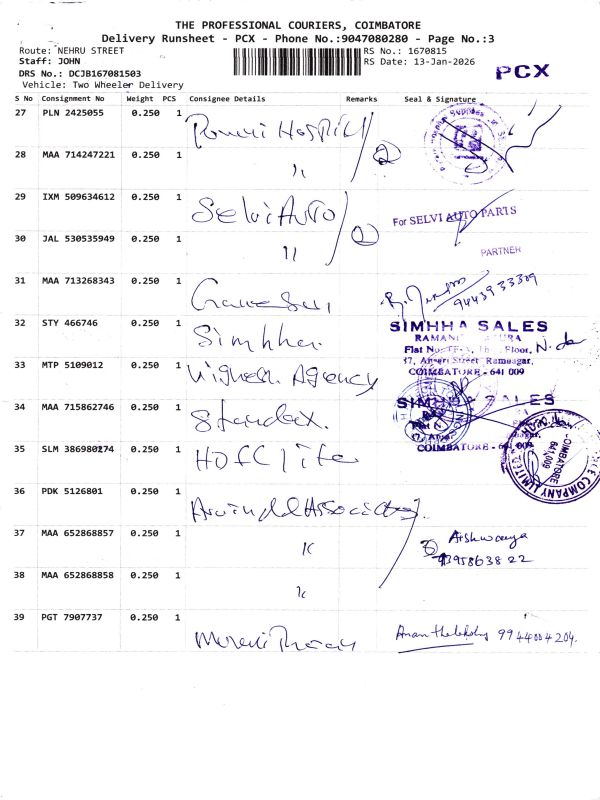 THE PROFESSIONAL COURIERS, COIMBATORE
Delivery Runsheet - PCX - Phone No.:9047080280 - Page No.:3
Route: NEHRU STREET
RS No.: 1670815
Staff: JOHN
RS Date: 13-Jan-2026
PCX
DRS No.: DCJB167081503
Vehicle: Two Wheeler Delivery
S No Consignment No Weight PCS Consignee Details Remarks Seal & Signature
27 PLN 2425055 0.250 1
28 MAA 714247221 0.250 1 " 2
29 IXM 509634612 0.250 1 Selvi Auto
For SELVI AUTO PARTS
30 JAL 530535949 0.250 1 " 2
PARTNER
31 MAA 713268343 0.250 1 9443933309
32 STY 466746 0.250 1 Simhha
SIMHHA SALES
Floor,
47, Ansari Street Ramnagar,
COIMBATORE - 641 009
33 MTP 5109012 0.250 1 Agency
34 MAA 715862746 0.250 1
SIMHHA SALES
COIMBATORE - 641 009
35 SLM 386980274 0.250 1 HDFC life
COIMBATORE 641,009
COMPANY LIMITED
36 PDK 5126801 0.250 1 Associates
37 MAA 652868857 0.250 1 " 3 Aishwarya
38 MAA 652868858 0.250 1 "
39 PGT 7907737 0.250 1 9944004204